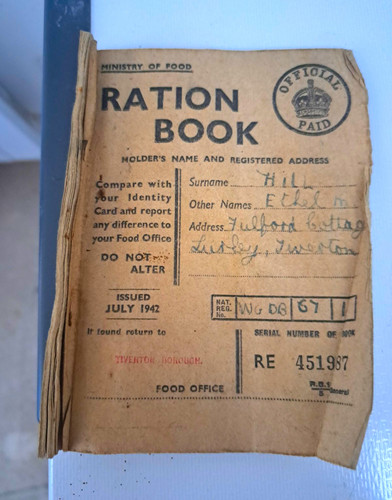 MINISTRY OF FOOD
OFFICIAL PAID
RATION
BOOK
HOLDER'S NAME AND REGISTERED ADDRESS
Compare with
your Identity
Card and report
any difference to
your Food Office
DO NOT
ALTER
Surname Hill
Other Names Ethel M
Address Fulford Cottag
Tiverton
ISSUED
JULY 1942
NAT.
REG.
No. WGDB 67 1
If found return to
TIVERTON BOROUGH.
FOOD OFFICE
SERIAL NUMBER OF BOOK
RE 451987
R.B.1
General